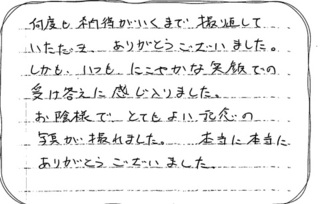 何度も納得がいくまで撮り直して
いただき、ありがとうございました。
しかも、いつもにこやかな笑顔での
受け答えに感じ入りました。
お陰様でとてもよい記念の
写真が撮れました。 本当に本当に
ありがとうございました。